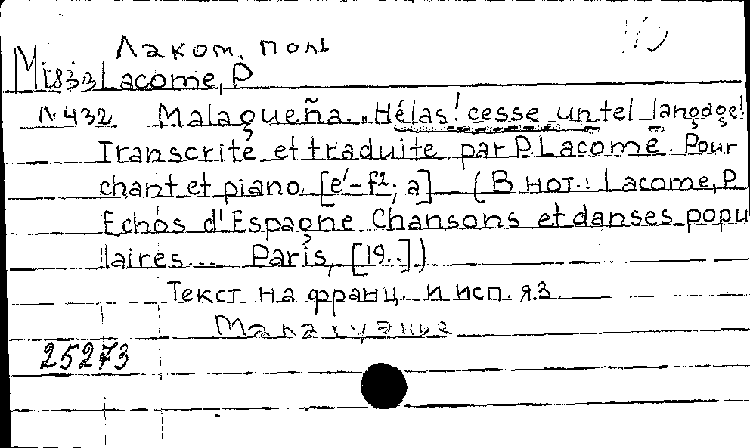 Лаком, поль
М 1833 Lacome, P
N 432 Malagueña. "Hélas! cesse un tel langage!
Transcrite et traduite par P. Lacome. Pour
chant et piano. [e'-f²; a] (В нот.: Lacome, P
Echos d'Espagne Chansons et danses popu
laires... Paris, [19..])
Текст на франц. и исп. яз.
Малагуэнья
25273